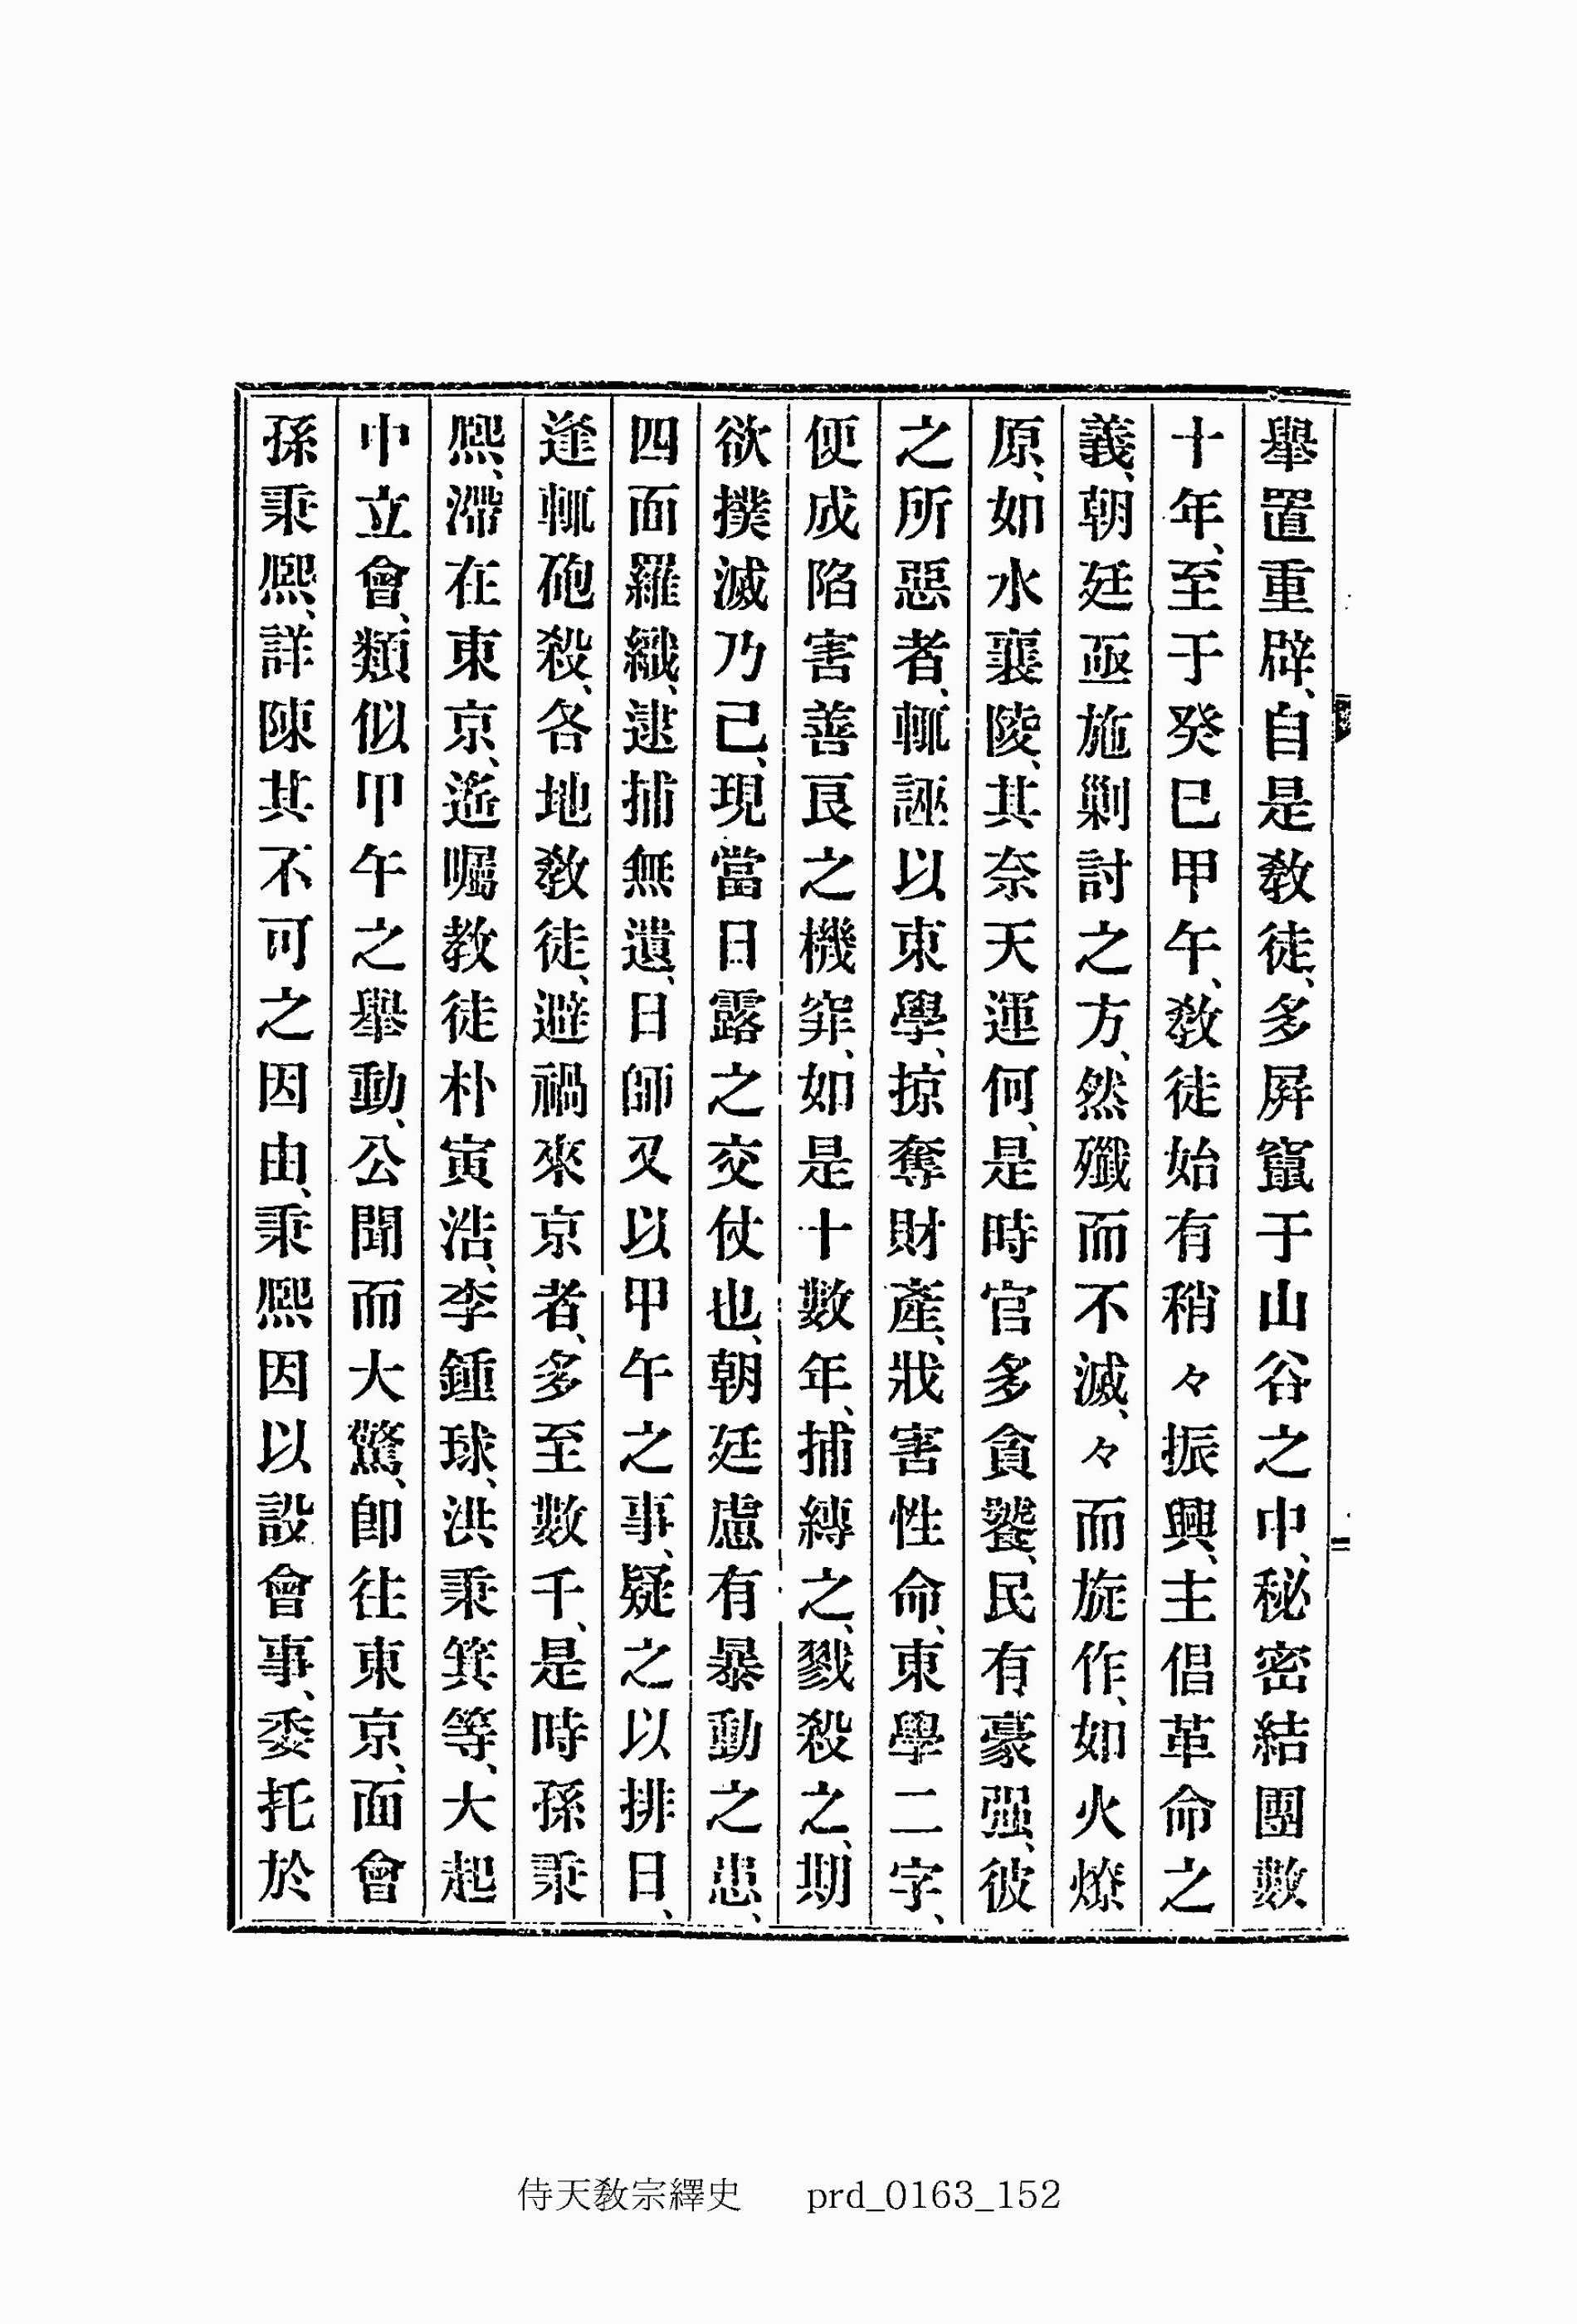 擧置重辟、自是敎徒、多屛竄于山谷之中、秘密結團數
十年、至于癸巳甲午、敎徒始有稍々振興、主倡革命之
義、朝廷亟施剿討之方、然殲而不滅、々而旋作、如火燎
原、如水襄陵、其奈天運何、是時官多貪饕、民有豪强、彼
之所惡者、輒誣以東學、掠奪財產、戕害性命、東學二字、
便成陷害善良之機穽、如是十數年、捕縛之、戮殺之、期
欲撲滅乃已、現當日露之交仗也、朝廷慮有暴動之患、
四面羅織、逮捕無遺、日師又以甲午之事、疑之以排日、
逢輒砲殺、各地敎徒、避禍來京者、多至數千、是時孫秉
熙、滯在東京、遙囑敎徒朴寅浩、李鍾球、洪秉箕等、大起
中立會、類似甲午之擧動、公聞而大驚、卽往東京、面會
孫秉熙、詳陳其不可之因由、秉熙因以設會事、委托於
侍天敎宗繹史 prd_0163_152